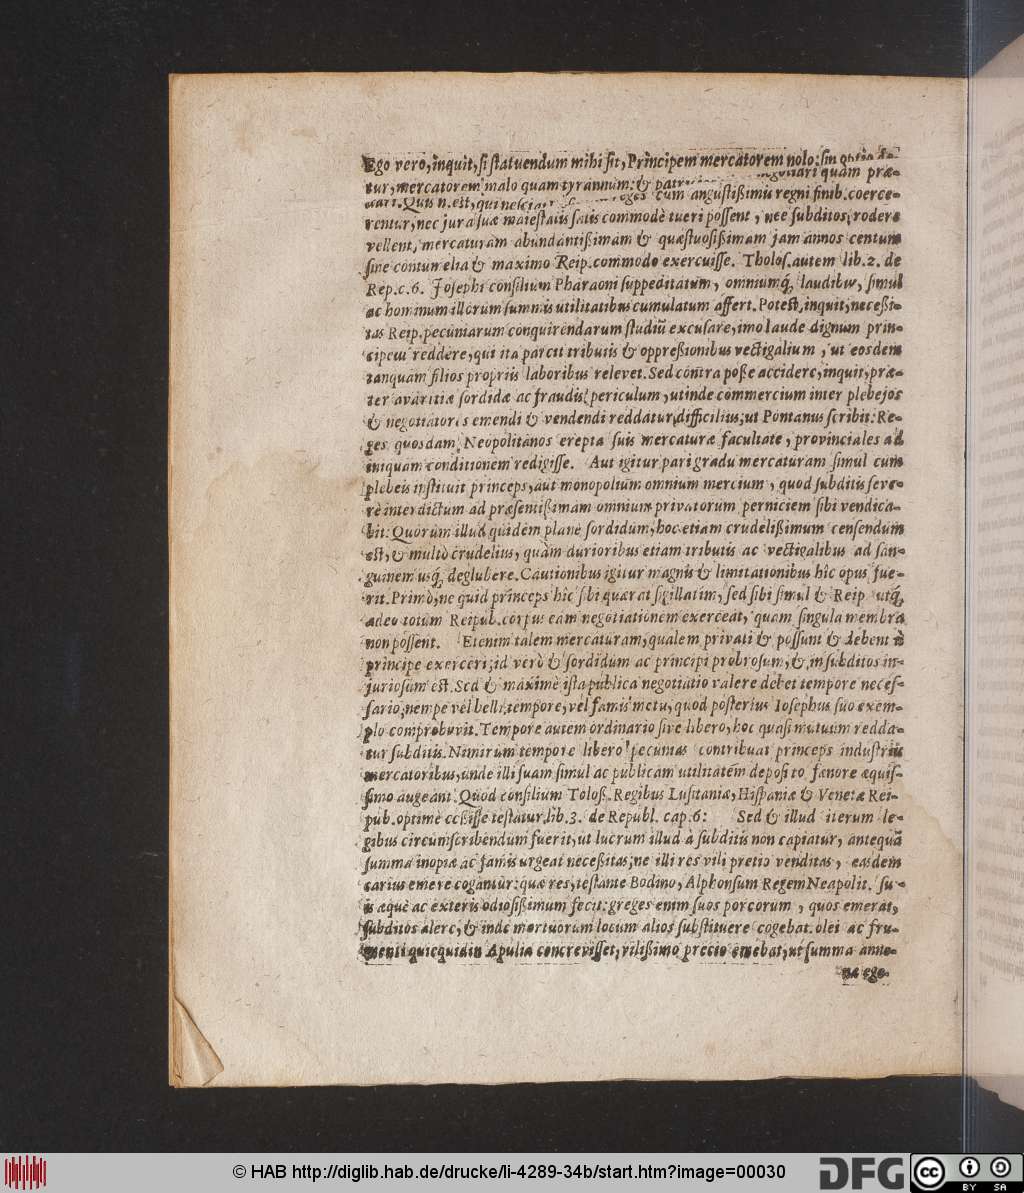 Ego vero, inquit, si statuendum mihi sit, Principem mercatorem nolo: sin optio de-
tur, mercatorem malo quam tyrannum: & patri negotiari quam præ-
dari. Quis n. est, qui nesciat reges cum angustißimis regni finib. coerce-
rentur, nec jura suæ maiestatis satis commodè tueri possent, nec subditos rodere
vellent, mercaturam abundantißimam & quæstuosißimam jam annos centum
sine contumelia & maximo Reip. commodo exercuisse. Tholos. autem lib. 2. de
Rep. c. 6. Josephi consilium Pharaoni suppeditatum, omniumq́; laudibus, simul
ac hominum illorum summis utilitatibus cumulatum affert. Potest, inquit, neceßi-
tas Reip. pecuniarum conquirendarum studiũ excusare, imo laude dignum prin-
cipem reddere, qui ita parcit tributis & oppreßionibus vectigalium, ut eosdem
tanquam filios propriis laboribus relevet. Sed contra poße accidere, inquit, præ-
ter avaritiæ sordidæ ac fraudis periculum, ut inde commercium inter plebejos
& negotiatores emendi & vendendi reddatur difficilius; ut Pontanus scribit: Re-
ges quosdam Neopolitanos erepta suis mercaturæ facultate, provinciales ad
iniquam conditionem redigisse. Aut igitur pari gradu mercaturam simul cum
plebeis instituit princeps, aut monopolium omnium mercium, quod subditis seve-
rè interdictum ad præsentißimam omnium privatorum perniciem sibi vendica-
bit: Quorum illud quidem planè sordidum, hoc etiam crudelißimum censendum
est, & multò crudelius, quàm durioribus etiam tributis ac vectigalibus ad san-
guinem usq́; deglubere. Cautionibus igitur magnis & limitationibus hîc opus fue-
rit. Primò, ne quid princeps hîc sibi quærat sigillatim, sed sibi simul & Reip utq́;
adeo totum Reipub. corpus eam negotiationem exerceat, quam singula membra
non possent. Etenim talem mercaturam, qualem privati & possunt & debent à
principe exerceri; id verò & sordidum ac principi probrosum, &, in subditos in-
juriosum est. Sed & maximè ista publica negotiatio valere debet tempore neces-
sario; nempe vel belli tempore, vel famis metu, quod posterius Iosephus suo exem-
plo comprobavit. Tempore autem ordinario sive libero, hoc quasi mutuum redda-
tur subditis. Nimirum tempore libero pecunias contribuat princeps industriis
mercatoribus, unde illi suam simul ac publicam utilitatem deposito fænore æquis-
simo augeant. Quod consilium Toloß. Regibus Lusitaniæ, Hispaniæ & Venetæ Rei-
pub. optimè ceßisse testatur. lib. 3. de Republ. cap. 6: Sed & illud iterum le-
gibus circumscribendum fuerit, ut lucrum illud à subditis non capiatur, antequã
summa inopiæ ac famis urgeat neceßitas; ne illi res vili pretio venditas, easdem
carius emere cogantur: quæ res, testante Bodino, Alphonsum Regem Neapolit. su-
is æquè ac exteris odiosißimum fecit: greges enim suos porcorum, quos emerat,
subditos alere, & inde mortuorum locum alios substituere cogebat. olei ac fru-
menti quicquid in Apulia concrevisset, vilißimo precio emebat, ut summa anno-
næ ege-
© HAB http://diglib.hab.de/drucke/li-4289-34b/start.htm?image=00030
DFG
cc BY SA